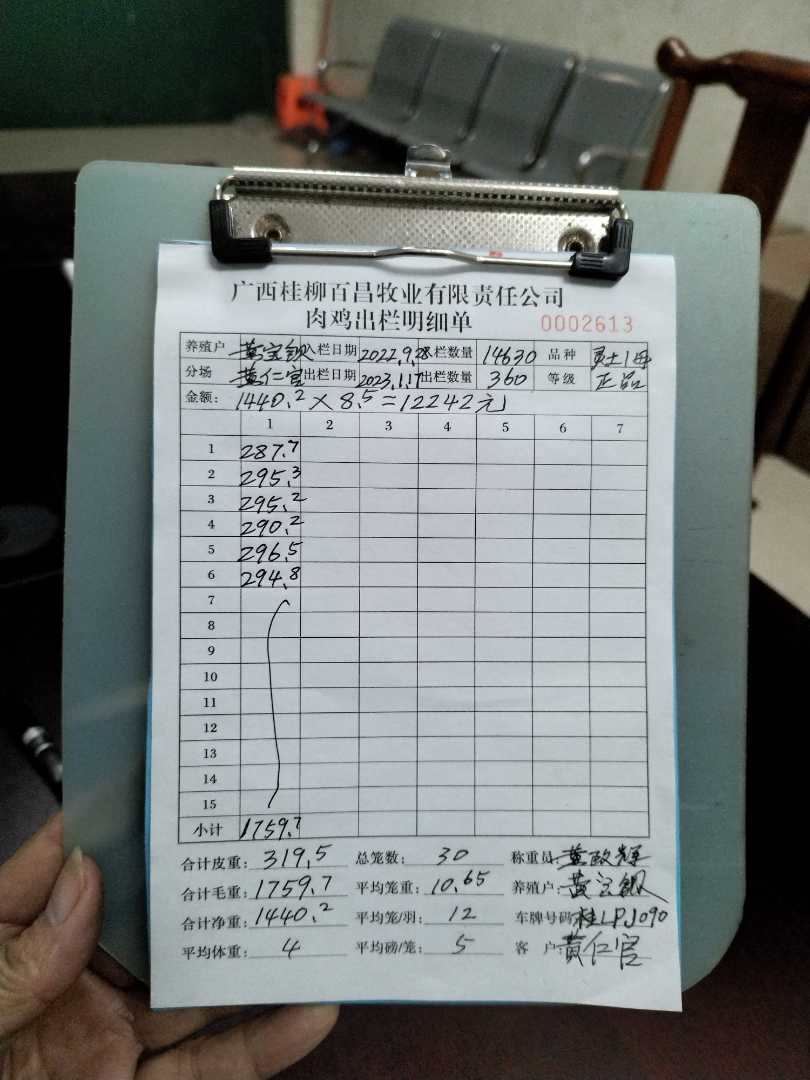 广西桂柳百昌牧业有限责任公司
肉鸡出栏明细单 0002613
养殖户 黄宝钦 入栏日期 2022.9.28 入栏数量 14630 品种 灵土1母
分场 黄仁官 出栏日期 2023.1.17 出栏数量 360 等级 正品
金额: 1440.2×8.5=12242元
1 2 3 4 5 6 7
1 287.7
2 295.3
3 295.2
4 290.2
5 296.5
6 294.8
7
8
9
10
11
12
13
14
15
小计 1759.7
合计皮重: 319.5 总笼数: 30 称重员: 黄政辉
合计毛重: 1759.7 平均笼重: 10.65 养殖户: 黄宝
合计净重: 1440.2 平均笼/羽: 12 车牌号码: 桂LPJ090
平均体重: 4 平均磅/笼: 5 客户: 黄仁官